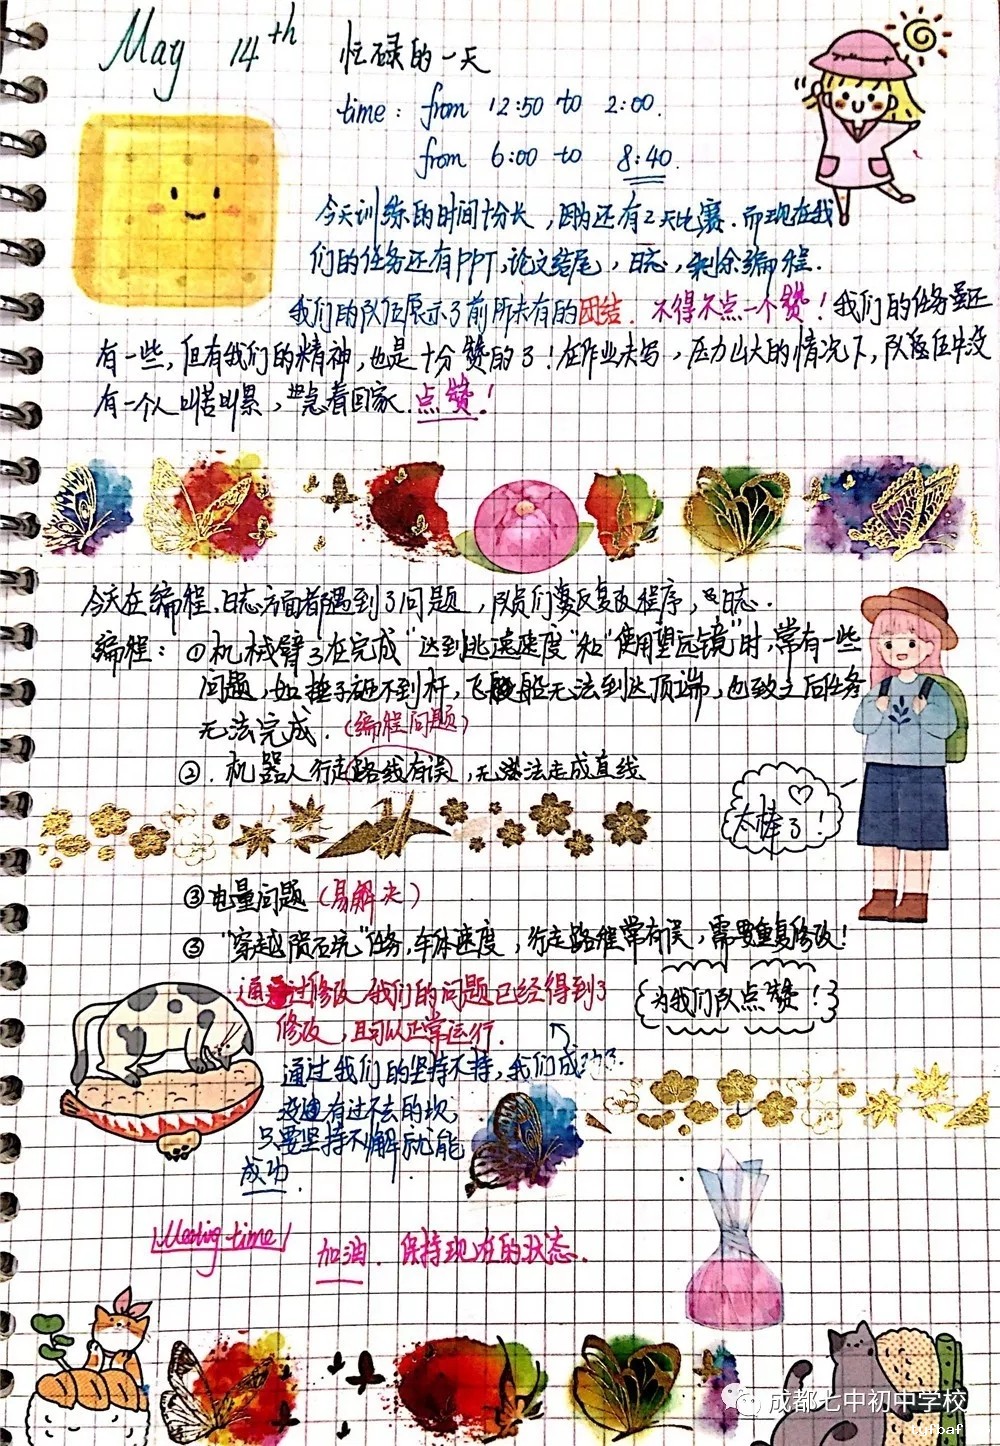 May 14th 忙碌的一天
time: from 12:50 to 2:00.
from 6:00 to 8:40.
今天训练的时间十分长，因为还有2天比赛.而现在我
们的任务还有PPT,论文结尾，日志，剩余编程.
我们的队伍展示了前所未有的团结.不得不点一个赞！我们的任务虽还
有一些，但有我们的精神，也是十分赞的了！在作业未写，压力山大的情况下，队伍中没
有一个人叫苦叫累，急着回家.点赞！
今天在编程、日志方面都遇到了问题，队员们要反复改程序，日志.
编程：①机械臂了在完成“达到逃逸速度”和“使用望远镜”时，常有一些
问题，如锤子砸不到杆，飞船无法到达顶端，也致之后任务
无法完成.（编程问题）
②.机器人行走路线有误，无法走成直线
太棒了！
③电量问题（易解决）
③“穿越陨石坑”任务，车体速度，行走路程常有误，需要重复修改！
通过修改 我们的问题已经得到了
修改，且可以正常运行.
为我们队点赞！
通过我们的坚持不持，我们成功了.
没有过不去的坎,
只要坚持不懈就能
成功.
Meeting time
加油.保持现在的状态.
成都七中初中学校